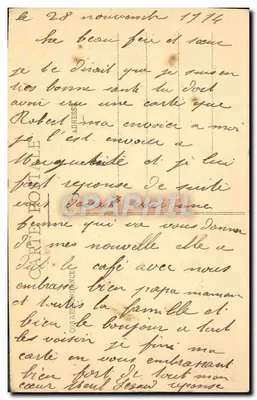 le 28 nouvembre 1914
beau et sœur
je te dirait que je suis en
tres bonne santé tu doit
avoir une carte que
Robert ma envoier a moi
je l'est envoier a
et je lui
fait reponse de suite
vous une
femme qui va vous donner
de mes nouvelle elle a
le café avec nous
embrasse bien papa maman
et toutes la famille et
bien le bonjour a tout
les voisin je fini ma
carte en vous embrassant
bien fort de tout mon
cœur reponse
CARTE POSTALE
CORRESPONDANCE
ADRESSE
CPAPHIL